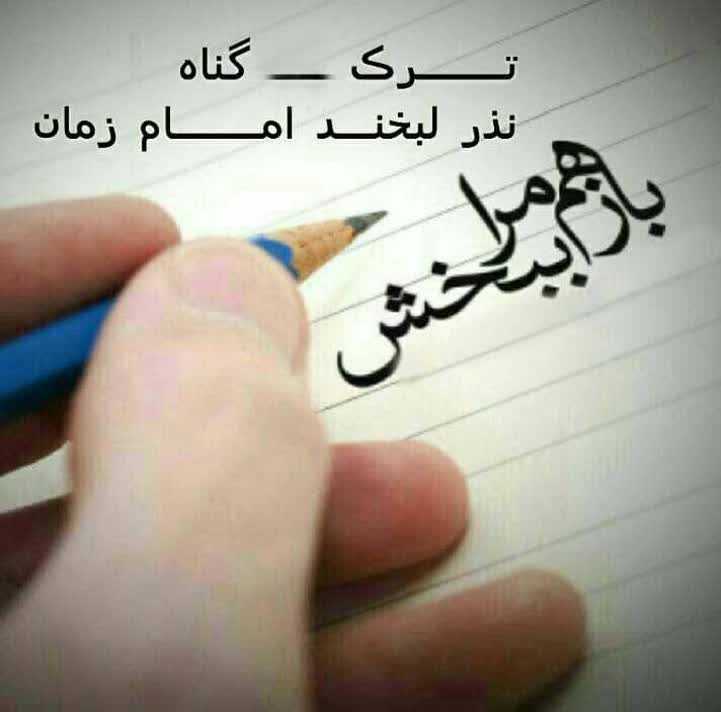 تـــرک ــ گناه
نذر لبخنـد امـــام زمان
باز هم مرا
ببخش